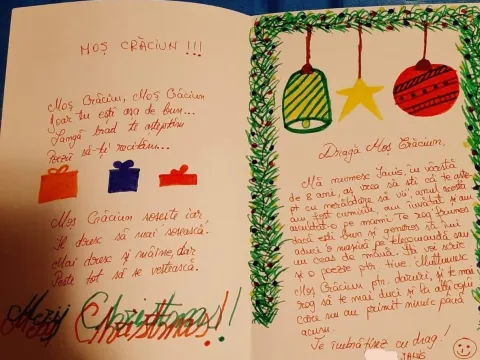 MOȘ CRĂCIUN !!!
Moș Crăciun, Moș Crăciun
Doar tu ești așa de bun...
Lângă brad te așteptăm
Poezii să-ți recităm...
Moș Crăciun sosește iar
Îl dresc să mai sosească.
Mai dresc și mâine, dar
Peste tot să se vestească.
Merry Christmas!!
Dragă Moș Crăciun,
Mă numesc Ianis, în vârstă
de 8 ani, aș vrea să știi că te aște-
pt cu nerăbdare să vii, anul acesta
am fost cuminte, am învățat și am
ascultat-o pe mami. Te rog frumos
dacă ești bun și generos să îmi
aduci o mașină pe telecomandă sau
un ceas de mână. Îți voi scrie
și o poezie ptr. tine. Mulțumesc
Moș Crăciun ptr. daruri, și te mai
rog să te mai duci și la alți copii
care nu au primit nimic până
acum.
Te îmbrățișez cu drag!
IANIS